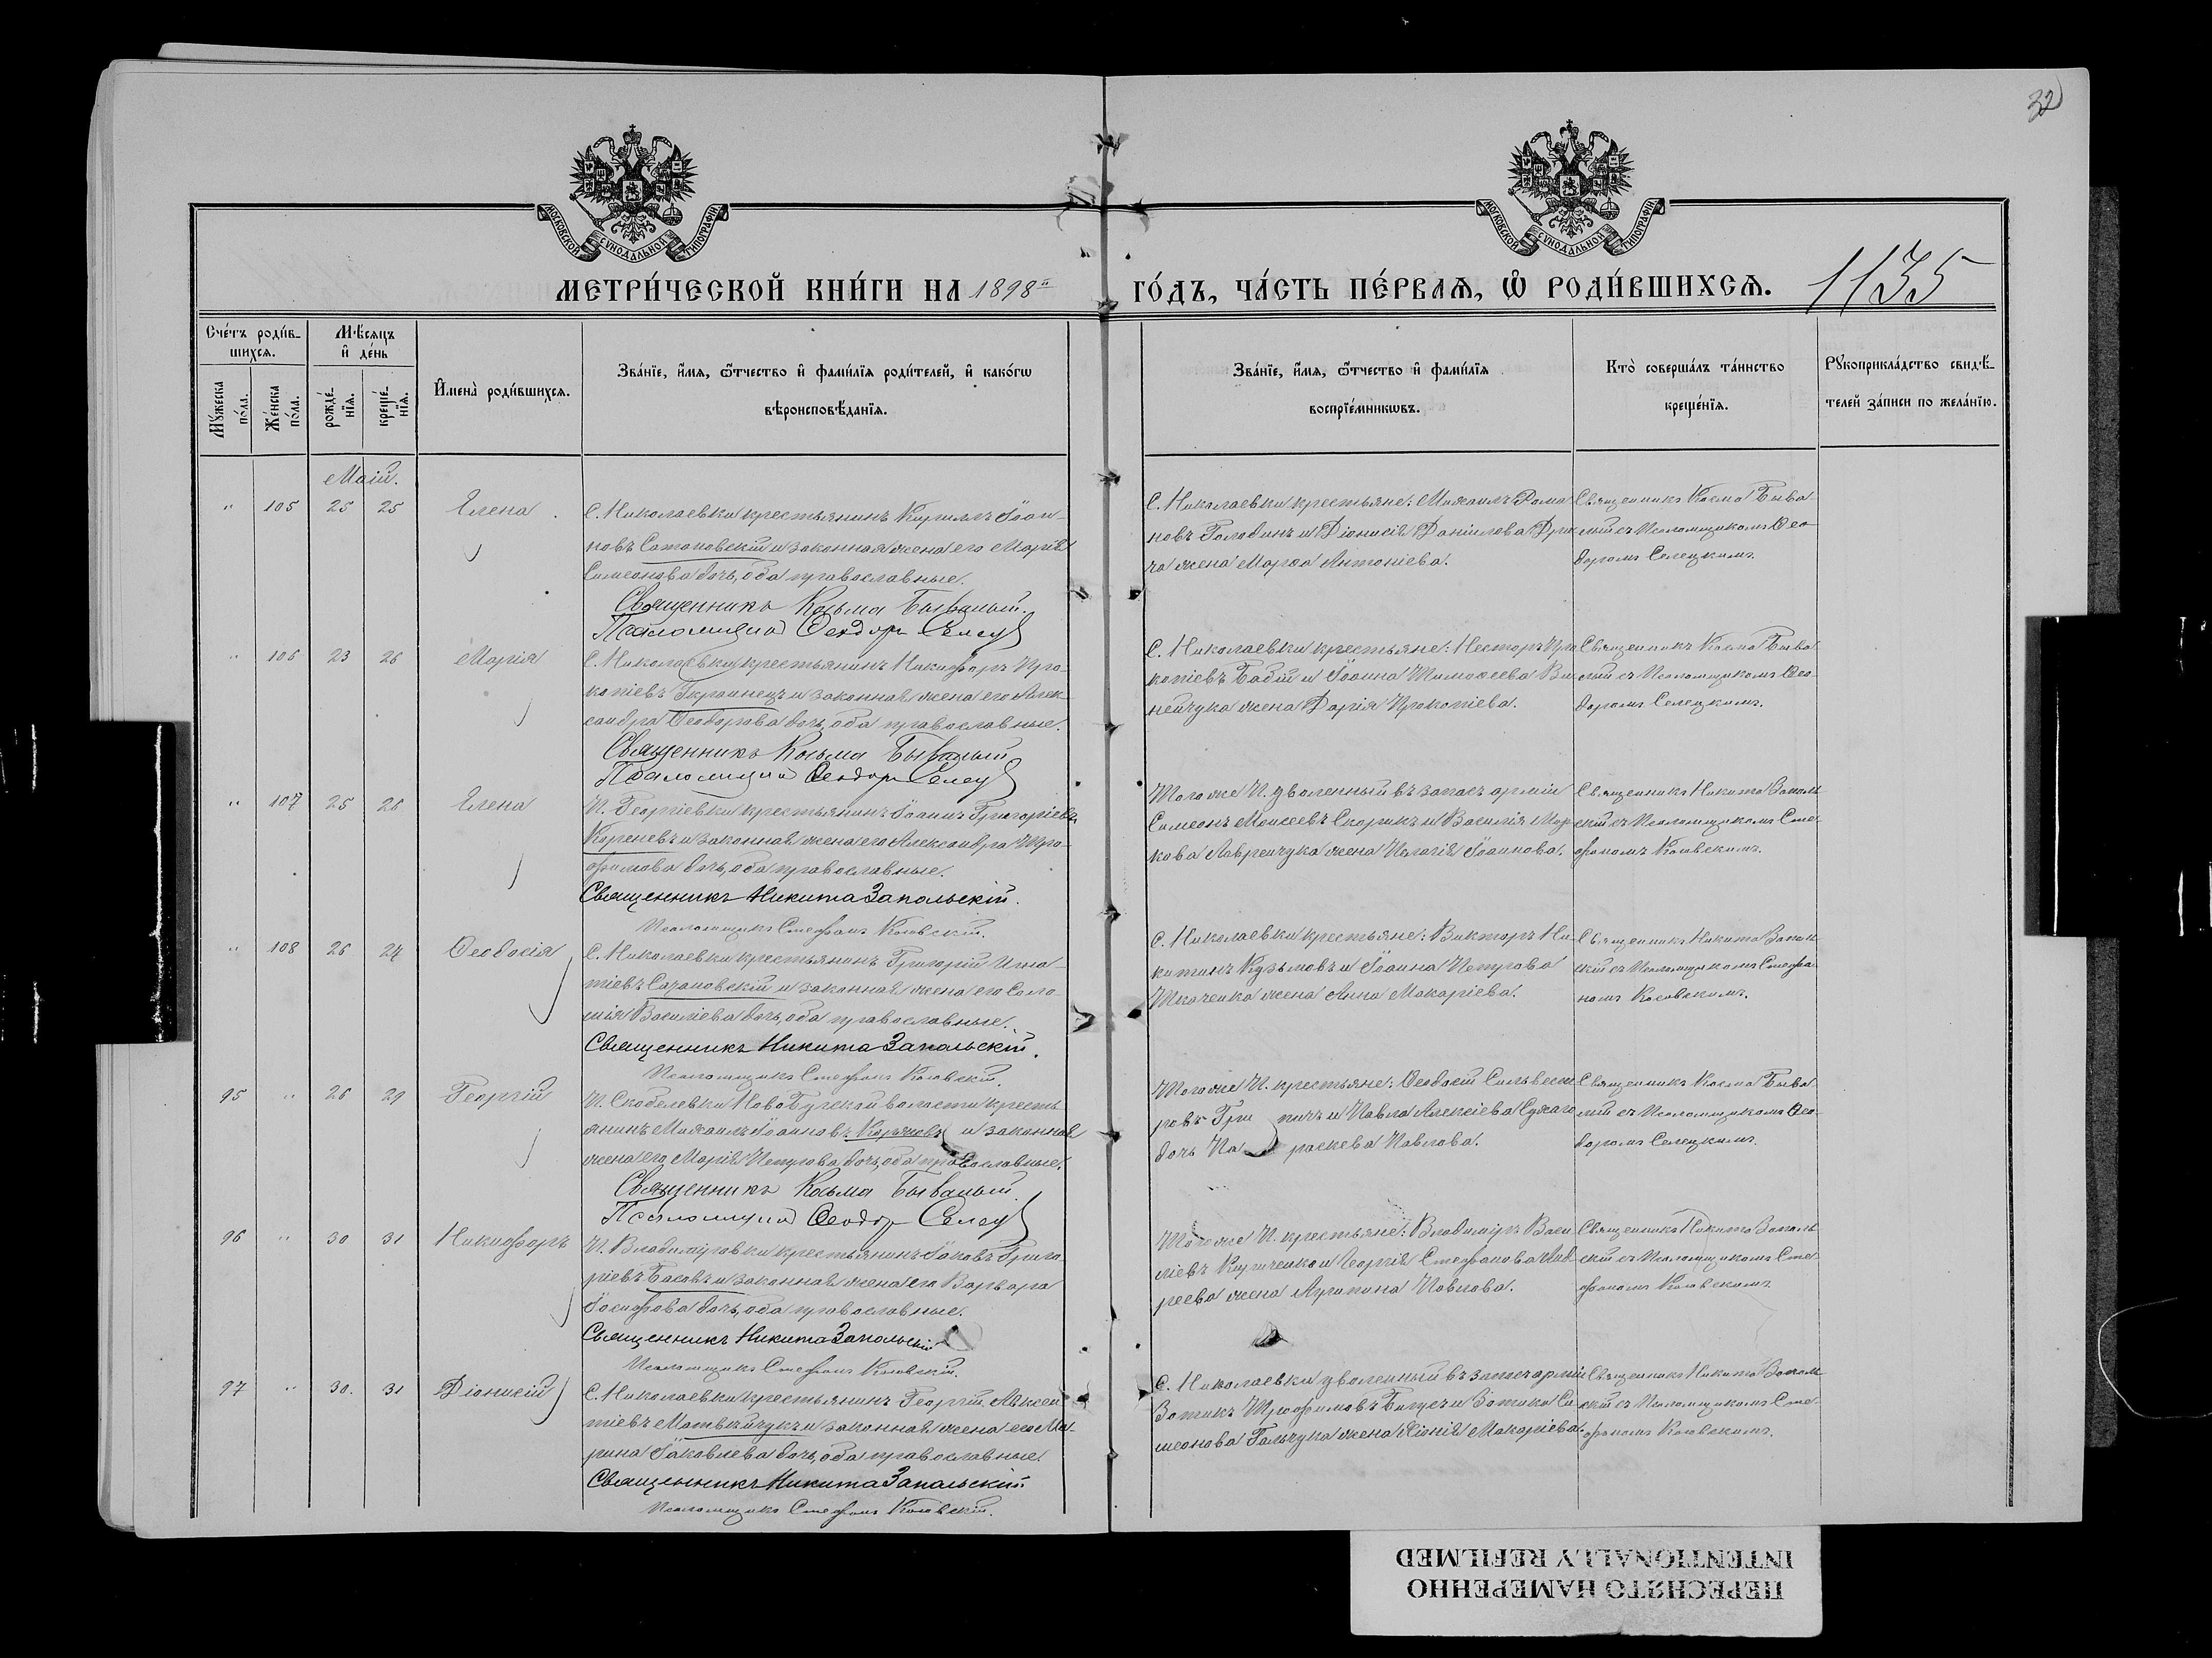 32
МОСКОВСКОЙ СѴНОДАЛЬНОЙ ТИПОГРАФІИ
МОСКОВСКОЙ СѴНОДАЛЬНОЙ ТИПОГРАФІИ
МЕТРИ́ЧЕСКОЙ КНИ́ГИ НА 1898й ГО́ДЪ, ЧА́СТЬ ПЕ́РВАѦ, Ѡ҆ РОДИ́ВШИХСѦ. 1135
Сче́тъ роди́в-
шихсѧ.
Мꙋ́жеска по́ла.
Же́нска по́ла.
Мѣ́сѧцъ
и҆ де́нь
рожде́-
нїѧ.
креще́-
нїѧ.
И҆мена̀ роди́вшихсѧ.
Зва́нїе, и҆́мѧ, ѻ҆́тчество и҆ фами́лїѧ роди́телей, и҆ како́гѡ
вѣроисповѣ́данїѧ.
Зва́нїе, и҆́мѧ, ѻ҆́тчество и҆ фами́лїѧ
воспрїе́мникѡвъ.
Кто̀ соверша́лъ та́инство
креще́нїѧ.
Рꙋкоприкла́дство свидѣ́-
телей за́писи по жела́нїю.
Маій.
" 105 25 25 Елена
С. Николаевки крестьянинъ Кириллъ Іоан-
новъ Сатановскій и законная жена его Марія
Симеонова дочь, оба православные.
Священникъ Косьма Бывалый.
Псаломщикъ Ѳеодоръ Селец
С. Николаевки крестьяне: Михаилъ Рома
новъ Голодинъ и Діонисія Даніилова Дри
га жена Марѳа Антоніева.
Священникъ Косма Быва-
лый съ Псаломщикомъ Ѳео-
доромъ Селецкимъ.
" 106 23 26 Марія
С. Николаевки крестьянинъ Никифоръ Про-
копіевъ Украинецъ и законная жена его Алек-
сандра Ѳеодорова дочь, оба православные.
Священникъ Косьма Бывалый
Псаломщикъ Ѳеодоръ Селец
С. Николаевки крестьяне: Несторъ Про
копіевъ Бабій и Іоанна Тимоѳеева Ви
нейчука жена Дарія Прокопіева.
Священникъ Косма Быва-
лый съ Псаломщикомъ Ѳео-
доромъ Селецкимъ.
" 107 25 26 Елена
П. Георгіевки крестьянинъ Іоаннъ Григоріевъ
Кореневъ и законная жена его Александра Тро-
фимова дочь, оба православные.
Священникъ Никита Запольскій.
Псаломщикъ Стефанъ Косовскій.
Того же П. уволенный въ запасъ арміи
Симеонъ Моисеевъ Скорикъ и Василія Мар
кова Лавренчука жена Пелагія Іоаннова.
Священникъ Никита Заполь
скій съ Псаломщикомъ Сте-
фаномъ Косовскимъ.
" 108 26 24 Ѳеодосія
С. Николаевки крестьянинъ Григорій Игна-
тіевъ Сатановскій и законная жена его Соло-
мія Василіева дочь, оба православные.
Священникъ Никита Запольскій.
Псаломщикъ Стефанъ Косовскій.
С. Николаевки крестьяне: Викторъ Ни-
китинъ Кузьмовъ и Іоанна Петрова
Ткаченка жена Анна Макаріева.
Священникъ Никита Заполь
скій съ Псаломщикомъ Стефа-
номъ Косовскимъ.
95 " 26 29 Георгій
П. Скобелевки Ново Бугской волости кресть-
янинъ Михаилъ Іоанновъ и законная
жена его Марія Петрова дочь, оба православные.
Священникъ Косьма Бывалый.
Псаломщикъ Ѳеодоръ Селец
Того же П. крестьяне: Ѳеодосій Сильвест
ровъ Гри и Павла Алексіева
дочь Параскева Павлова.
Священникъ Косма Быва-
лый съ Псаломщикомъ Ѳео-
доромъ Селецкимъ.
96 " 30 31 Никифоръ
П. Владиміровки крестьянинъ Іаковъ Григо-
ріевъ Басовъ и законная жена его Варвара
Іосифова дочь, оба православные.
Священникъ Никита Запольскій
Псаломщикъ Стефанъ Косовскій.
Того же П. крестьяне: Владиміръ Васи
ліевъ Кириченко и Георгія Стефанова Анд
реева жена Агрипина Павлова.
Священникъ Никита Заполь
скій съ Псаломщикомъ Сте-
фаномъ Косовскимъ.
97 " 30. 31 Діонисій
С. Николаевки крестьянинъ Георгій Авксен
тіевъ Матвѣйчукъ и законная жена его Ма-
рина Іаковлева дочь, оба православные.
Священникъ Никита Запольскій
Псаломщикъ Стефанъ Косовскій.
С. Николаевки уволенный въ запасъ арміи
Зотикъ Трофимовъ и Зотика Си
меонова Гальчука жена Ксенія Макаріева.
Священникъ Никита Заполь
скій съ Псаломщикомъ Сте-
фаномъ Косовскимъ.
ПЕРЕСНЯТО НАМЕРЕННО
INTENTIONALLY REFILMED